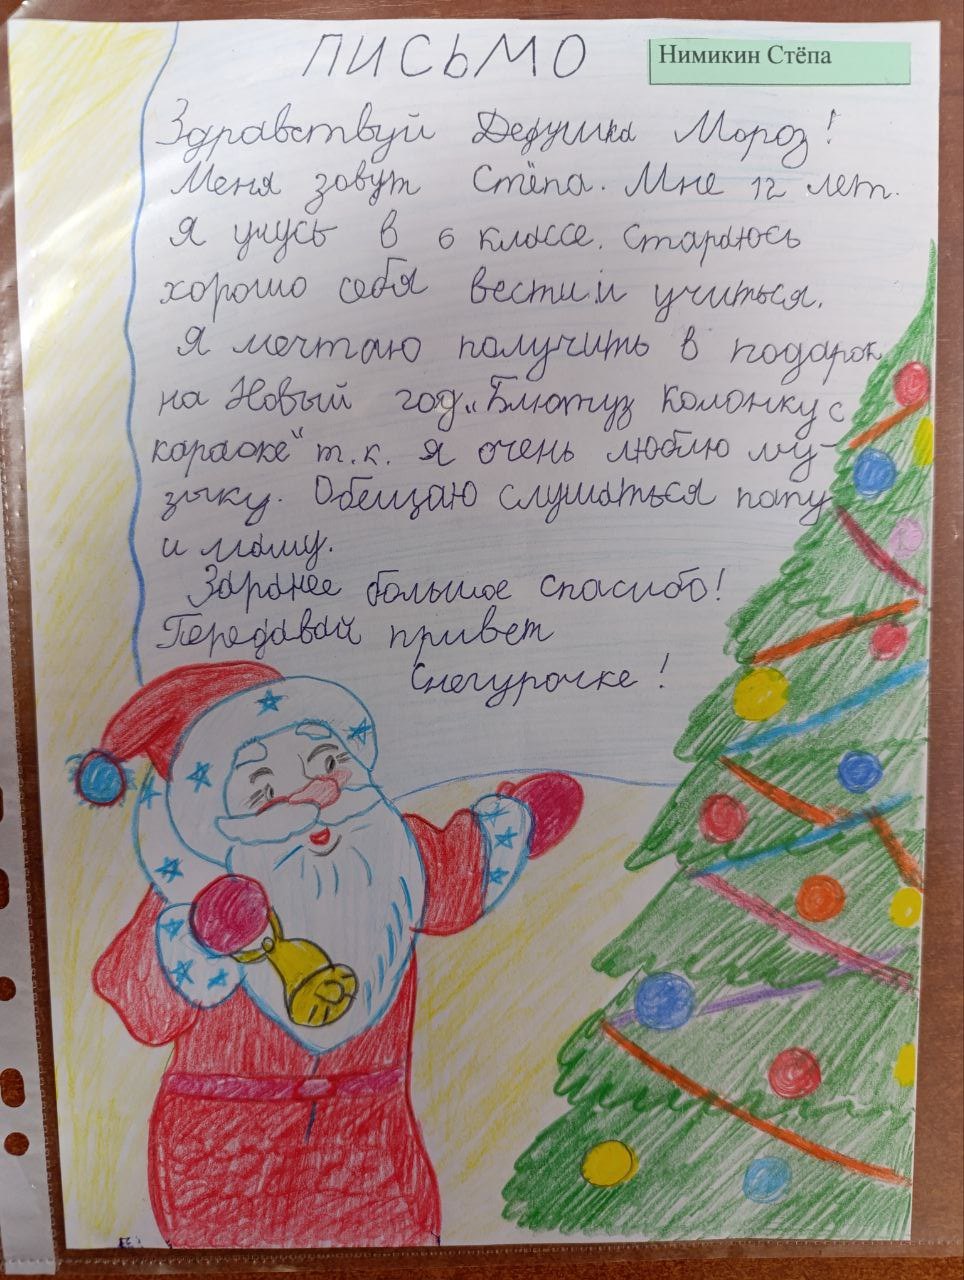 ПИСЬМО
Нимикин Стёпа
Здравствуй Дедушка Мороз!
Меня зовут Стёпа. Мне 12 лет.
Я учусь в 6 классе. Стараюсь
хорошо себя вести и учиться.
Я мечтаю получить в подарок
на Новый год „Блютуз колонку с
караоке" т.к. я очень люблю му-
зыку. Обещаю слушаться папу
и маму.
Заранее большое спасибо!
Передавай привет
Снегурочке!